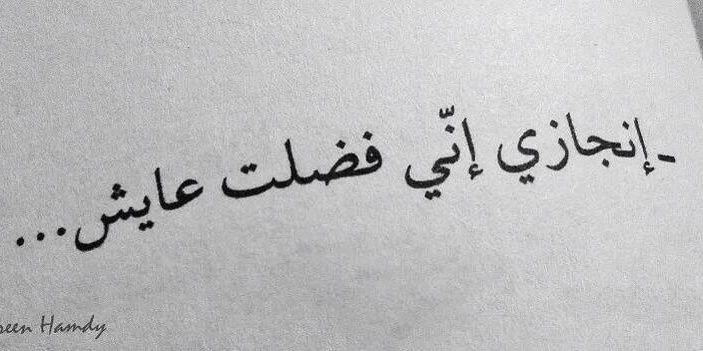 -إنجازي إنّي فضلت عايش...
Hamdy